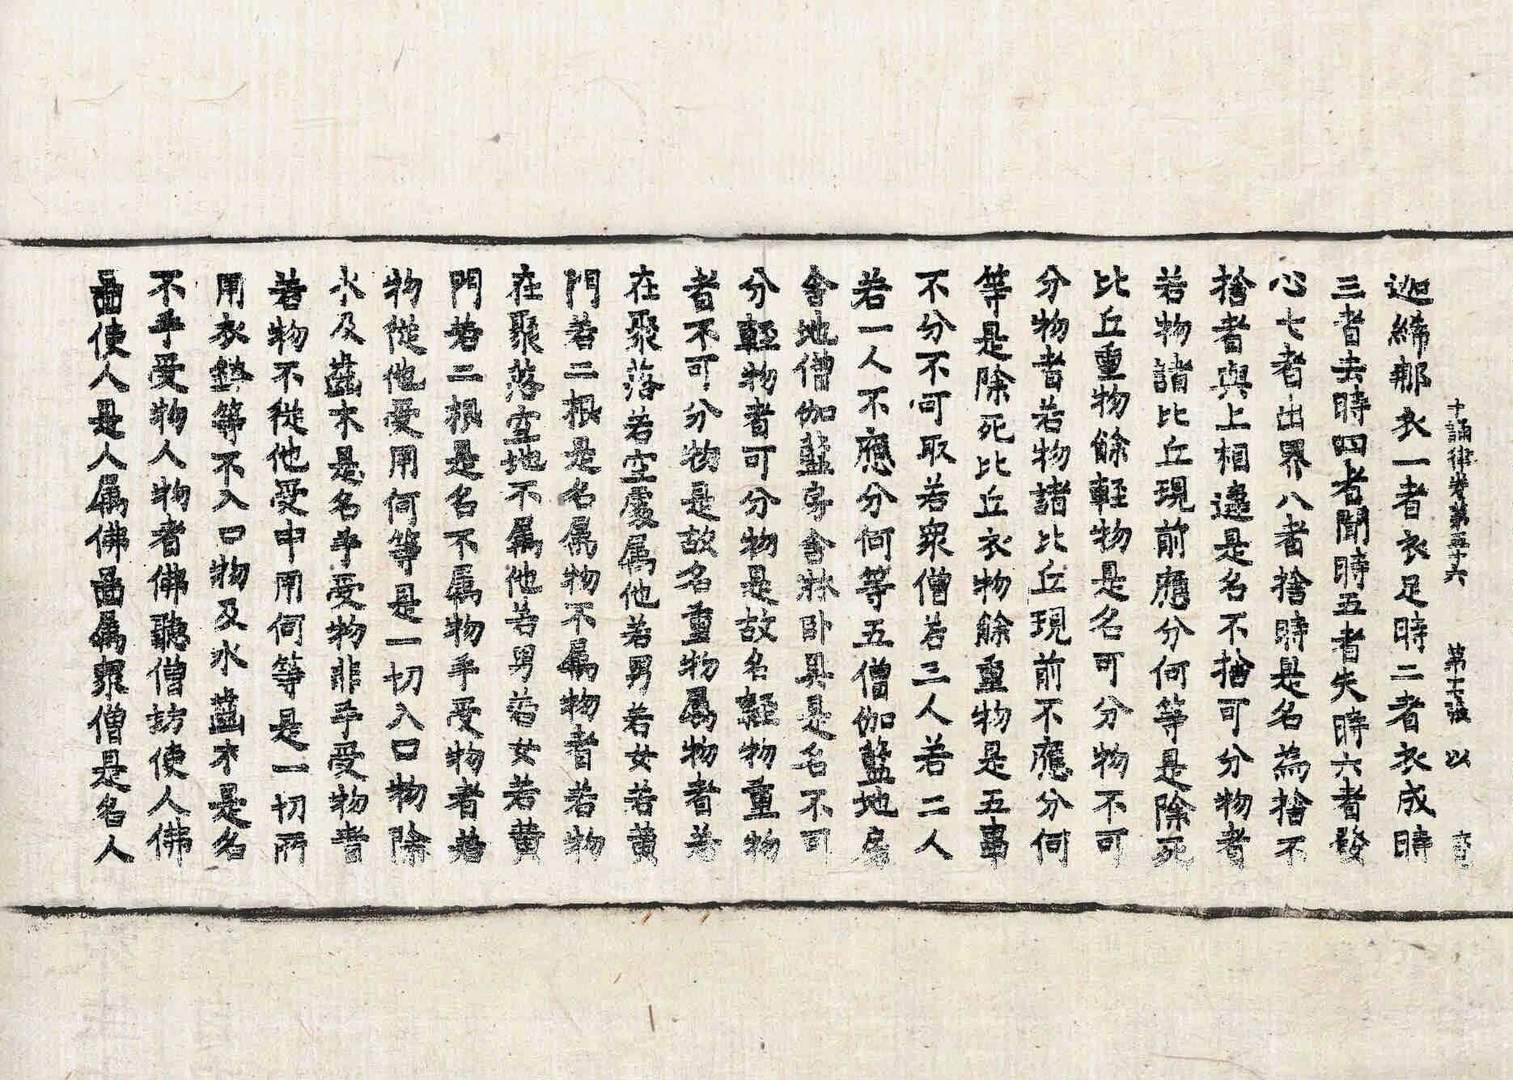 十誦律卷第五十六 第十七張 以
迦絺那衣一者衣足時二者衣成時
三者去時四者聞時五者失時六者發
心七者出界八者捨時是名為捨不
捨者與上相違是名不捨可分物者
若物諸比丘現前應分何等是除死
比丘重物餘輕物是名可分物不可
分物者若物諸比丘現前不應分何
等是除死比丘衣物餘重物是五事
不分不可取若衆僧若三人若二人
若一人不應分何等五僧伽藍地房
舍地僧伽藍房舍牀卧具是名不可
分輕物者可分物是故名輕物重物
者不可分物是故名重物属物者若
在聚落若空處属他若男若女若黃
門若二根是名属物不属物者若物
在聚落空地不属他若男若女若黃
門若二根是名不属物手受物者若
物從他受用何等是一切入口物除
水及齒木是名手受物非手受物者
若物不從他受中用何等是一切所
用衣鉢等不入口物及水齒木是名
不手受物人物者佛聽僧坊使人佛
啚使人是人属佛啚属衆僧是名人